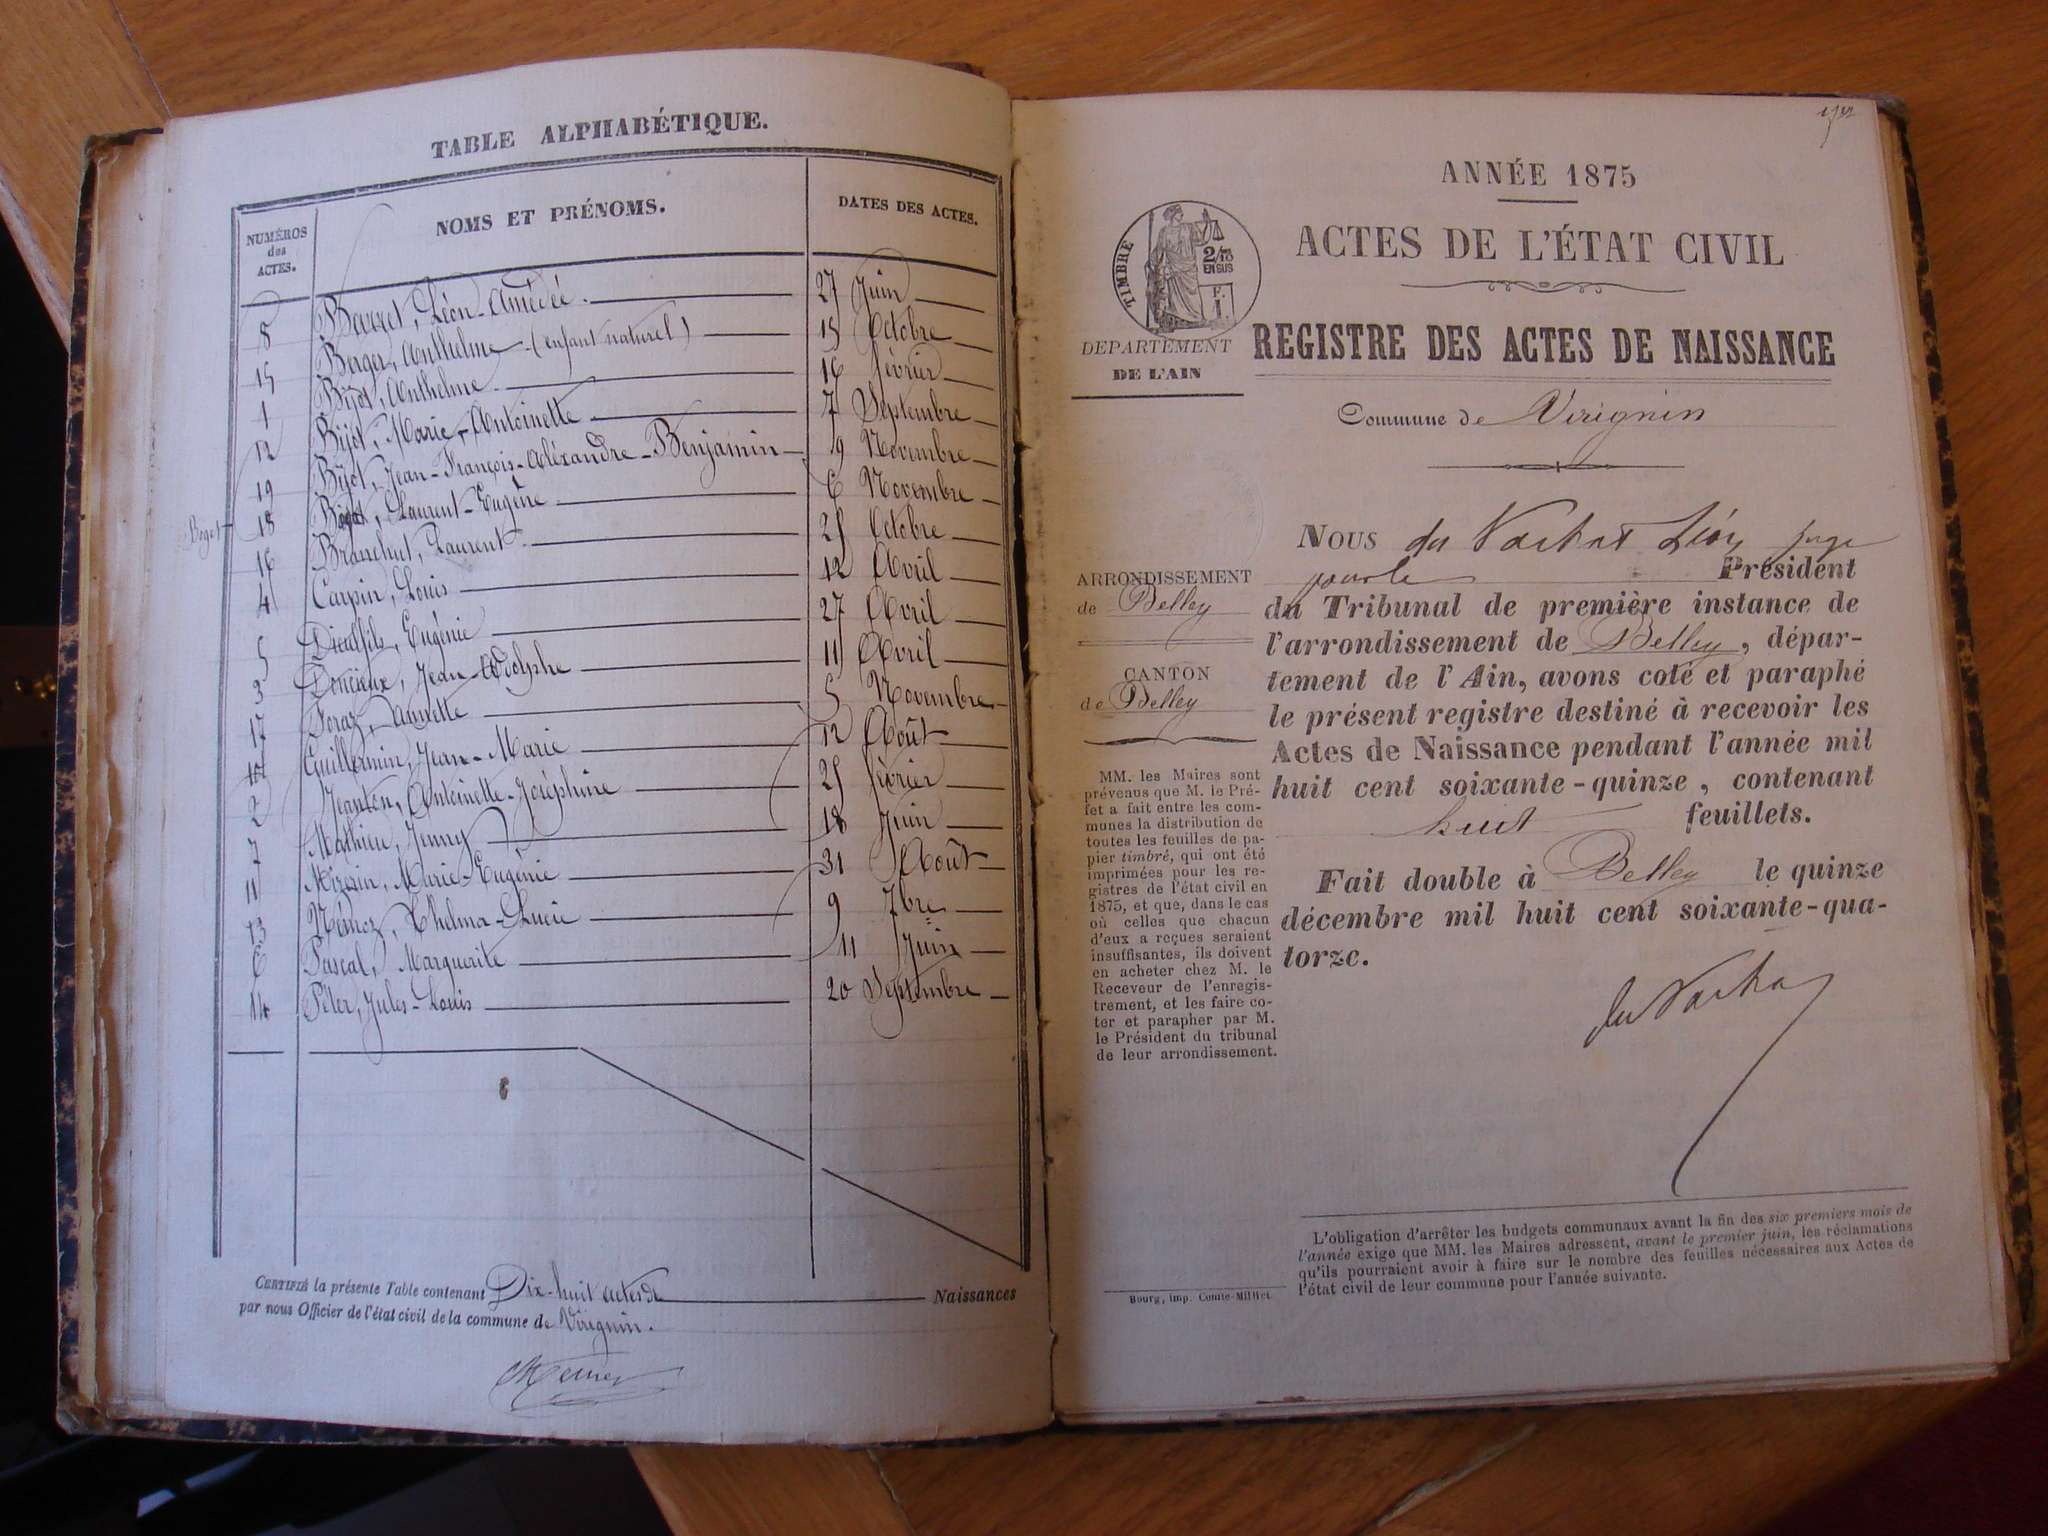 TABLE ALPHABÉTIQUE.
NUMÉROS des ACTES. NOMS ET PRÉNOMS. DATES DES ACTES.
8 Léon-Amédée. 27 Juin
15 Berger, Anthelme (enfant naturel) 15 Octobre
1 Bijot, Anthelme 16 Février
12 Bijot, Marie-Antoinette 7 Septembre
19 Bijot, Jean-François-Aléxandre-Benjamin 9 Novembre
Boget 18 Laurent-Eugène 6 Novembre
16 Laurent 25 Octobre
4 Carpin, Louis 12 Avril
5 Dieulfils, Eugénie 27 Avril
3 Doncieux, Jean-Adolphe 11 Avril
17 Foraz, 5 Novembre
Guillermin, Jean-Marie 12 Août
2 Jeanton, Antoinette-Joséphine 25 Février
7 Mathieu, Jenny 18 Juin
11 Marie-Eugénie 31 Août
13 Némoz, Thelma-Lucie 9 7bre
6 Pascal, Marguerite 11 Juin
14 Péter, Jules-Louis 20 Septembre
CERTIFIÉ la présente Table contenant Dix-huit actes de Naissances
par nous Officier de l'état civil de la commune de Virignin.
ANNÉE 1875
ACTES DE L'ÉTAT CIVIL
TIMBRE
2/10
EN SUS
REGISTRE DES ACTES DE NAISSANCE
DEPARTEMENT
DE L'AIN
Commune de Virignin
NOUS du Vachat Léon juge
pour le Président
du Tribunal de première instance de
l'arrondissement de Belley, dépar-
tement de l'Ain, avons coté et paraphé
le présent registre destiné à recevoir les
Actes de Naissance pendant l'année mil
huit cent soixante-quinze, contenant
huit feuillets.
Fait double à Belley le quinze
décembre mil huit cent soixante-qua-
torze.
du Vachat
ARRONDISSEMENT
de Belley
CANTON
de Belley
MM. les Maires sont
prévenus que M. le Pré-
fet a fait entre les com-
munes la distribution de
toutes les feuilles de pa-
pier timbré, qui ont été
imprimées pour les re-
gistres de l'état civil en
1875, et que, dans le cas
où celles que chacun
d'eux a reçues seraient
insuffisantes, ils doivent
en acheter chez M. le
Receveur de l'enregis-
trement, et les faire co-
ter et parapher par M.
le Président du tribunal
de leur arrondissement.
L'obligation d'arrêter les budgets communaux avant la fin des six premiers mois de
l'année exige que MM. les Maires adressent, avant le premier juin, les réclamations
qu'ils pourraient avoir à faire sur le nombre des feuilles nécessaires aux Actes de
l'état civil de leur commune pour l'année suivante.
Bourg, imp. Comte-Milliet